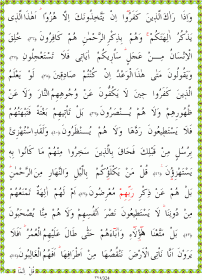 وَإِذَا رَآكَ الَّذِينَ كَفَرُوا إِنْ يَتَّخِذُونَكَ إِلَّا هُزُوًا أَهَذَا الَّذِي
يَذْكُرُ آلِهَتَكُمْ وَهُمْ بِذِكْرِ الرَّحْمَنِ هُمْ كَافِرُونَ ﴿٣٦﴾ خُلِقَ
الْإِنْسَانُ مِنْ عَجَلٍ سَأُرِيكُمْ آيَاتِي فَلَا تَسْتَعْجِلُونِ ﴿٣٧﴾
وَيَقُولُونَ مَتَى هَذَا الْوَعْدُ إِنْ كُنْتُمْ صَادِقِينَ ﴿٣٨﴾ لَوْ يَعْلَمُ
الَّذِينَ كَفَرُوا حِينَ لَا يَكُفُّونَ عَنْ وُجُوهِهِمُ النَّارَ وَلَا عَنْ
ظُهُورِهِمْ وَلَا هُمْ يُنْصَرُونَ ﴿٣٩﴾ بَلْ تَأْتِيهِمْ بَغْتَةً فَتَبْهَتُهُمْ
فَلَا يَسْتَطِيعُونَ رَدَّهَا وَلَا هُمْ يُنْظَرُونَ ﴿٤٠﴾ وَلَقَدِ اسْتُهْزِئَ
بِرُسُلٍ مِنْ قَبْلِكَ فَحَاقَ بِالَّذِينَ سَخِرُوا مِنْهُمْ مَا كَانُوا بِهِ
يَسْتَهْزِؤُونَ ﴿٤١﴾ قُلْ مَنْ يَكْلَؤُكُمْ بِاللَّيْلِ وَالنَّهَارِ مِنَ الرَّحْمَنِ
بَلْ هُمْ عَنْ ذِكْرِ رَبِّهِمْ مُعْرِضُونَ ﴿٤٢﴾ أَمْ لَهُمْ آلِهَةٌ تَمْنَعُهُمْ
مِنْ دُونِنَا لَا يَسْتَطِيعُونَ نَصْرَ أَنْفُسِهِمْ وَلَا هُمْ مِنَّا يُصْحَبُونَ
﴿٤٣﴾ بَلْ مَتَّعْنَا هَؤُلَاءِ وَآبَاءَهُمْ حَتَّى طَالَ عَلَيْهِمُ الْعُمُرُ أَفَلَا
يَرَوْنَ أَنَّا نَأْتِي الْأَرْضَ نَنْقُصُهَا مِنْ أَطْرَافِهَا أَفَهُمُ الْغَالِبُونَ ﴿٤٤﴾
قُلْ إِنَّمَا